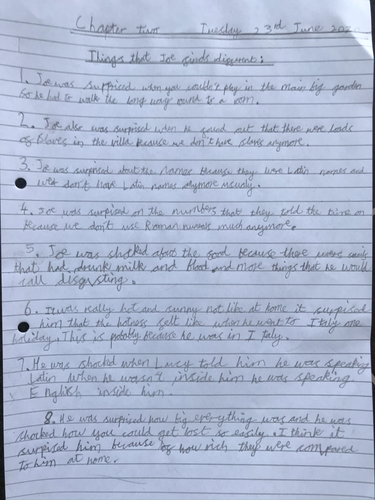 Chapter two Tuesday 23rd June
Things that Joe finds different:
1. Joe was surprised when you couldn't play in the main big garden
So he had to walk the long way round to a room.
2. Joe also was surprised when he found out that there were loads
of slaves in the villa because we don't have slaves anymore.
3. Joe was surprised about the names because they were Latin names and
we don't have Latin names anymore usually.
4. Joe was surprised on the numbers that they told the time on
Because we don't use Roman numerals much anymore.
5. Joe was shocked about the food because there were snails
that had drunk milk and blood and more things that he would
call disgusting.
6. It was really hot and sunny not like at home it surprised
him that the hotness felt like when he went to Italy one
holiday. This is probably because he was in Italy.
7. He was shocked when Lucy told him he was speaking
Latin when he wasn't inside him he was speaking
English inside him.
8. He was surprised how big everything was and he was
shocked how you could get lost so easily. I think it
surprised him because of how rich they were compared
to him at home.